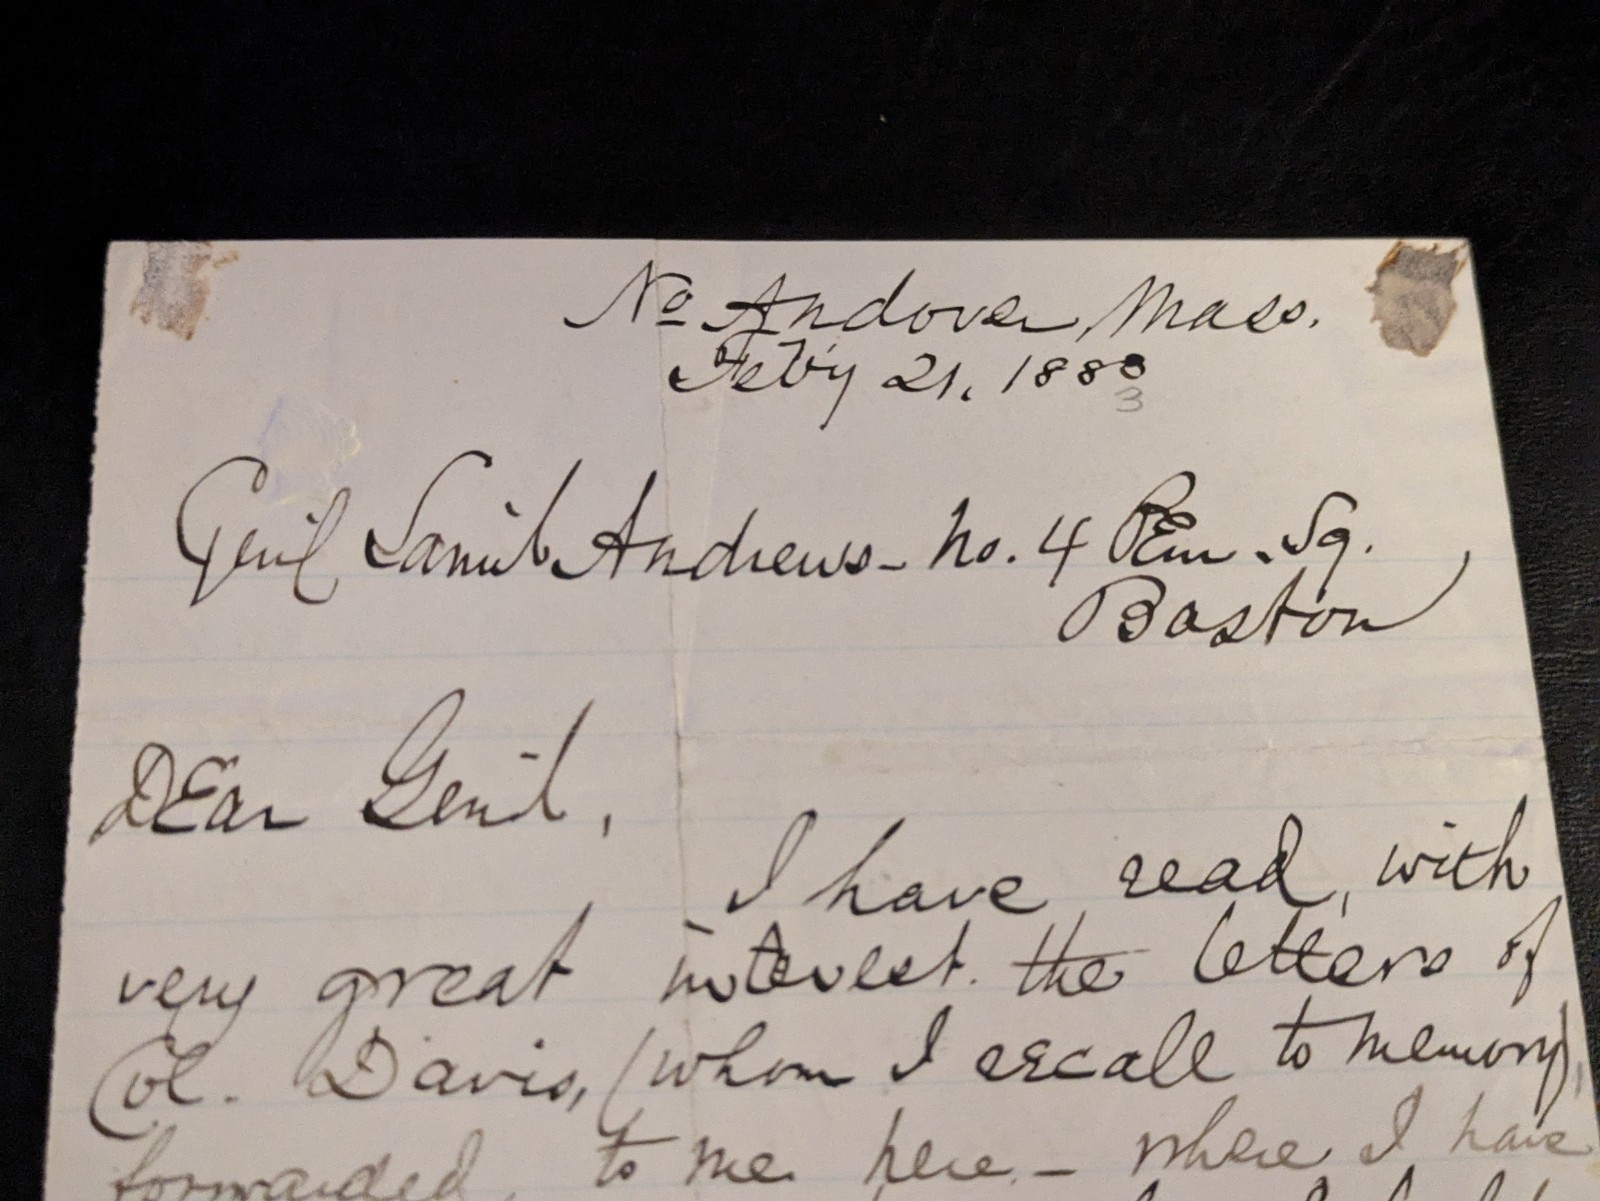 No Andover, Mass.
Feb'y 21, 1888
3
Gen'l Sam'l Andrews - No. 4 Pem. Sq.
Boston
Dear Gen'l,
I have read, with
very great interest. the letters of
Col. Davis, (whom I recall to memory),
forwarded, to me here. - where I have